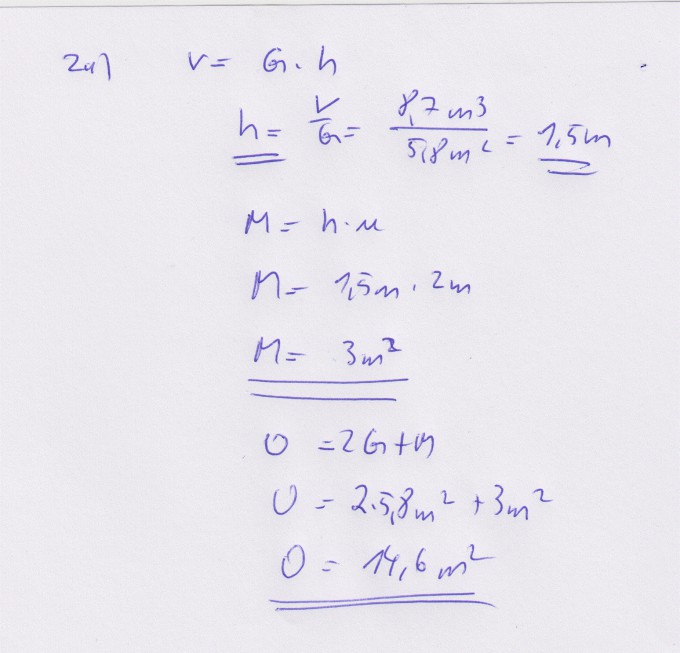 2a) V = G · h
h = V/G = 8,7 m³ / 5,8 m² = 1,5 m
M = h · u
M = 1,5 m · 2 m
M = 3 m²
O = 2G + M
O = 2 · 5,8 m² + 3 m²
O = 14,6 m²